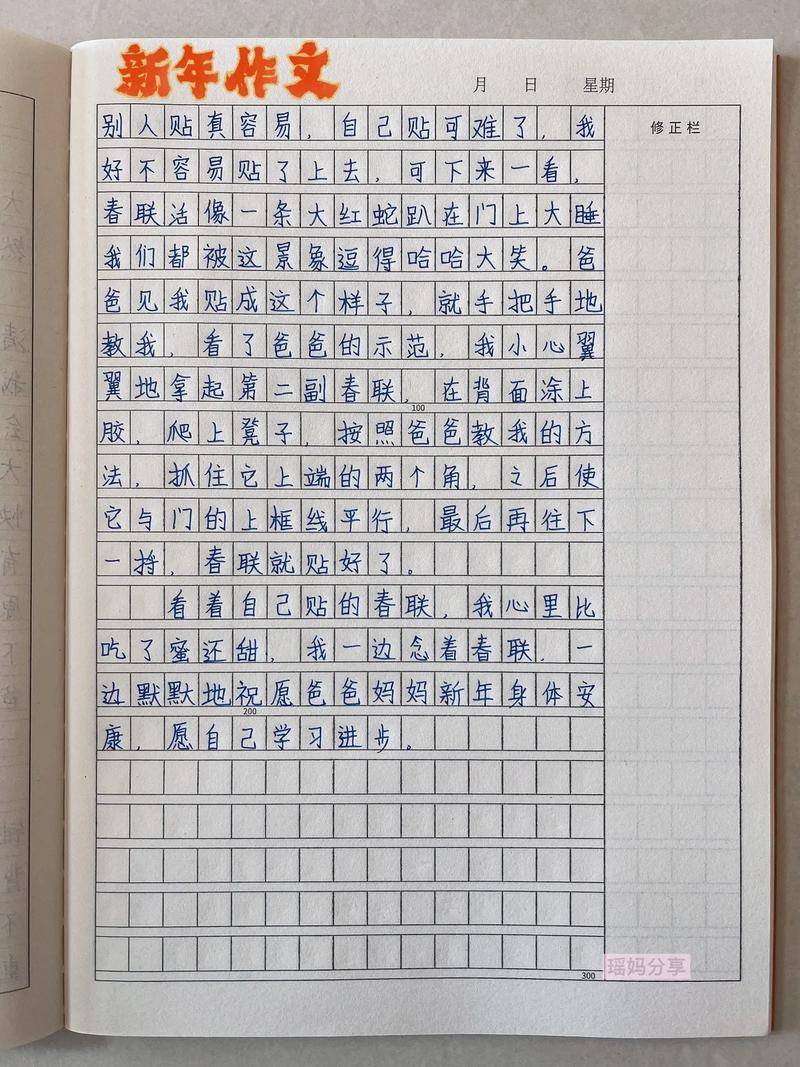 新年作文
月 日 星期
修正栏
别人贴真容易，自己贴可难了，我
好不容易贴了上去，可下来一看，
春联活像一条大红蛇趴在门上大睡
我们都被这景象逗得哈哈大笑。爸
爸见我贴成这个样子，就手把手地
教我，看了爸爸的示范，我小心翼
翼地拿起第二副春联，在背面涂上
100
胶，爬上凳子，按照爸爸教我的方
法，抓住它上端的两个角，之后使
它与门的上框线平行，最后再往下
一捋，春联就贴好了。
看着自己贴的春联，我心里比
吃了蜜还甜，我一边念着春联，一
边默默地祝愿爸爸妈妈新年身体安
200
康，愿自己学习进步。
300
瑶妈分享